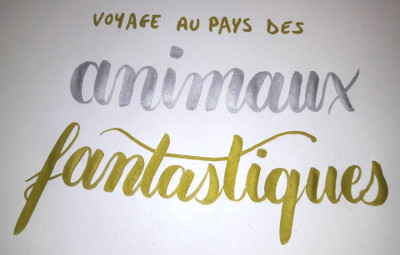 VOYAGE AU PAYS DES
animaux
fantastiques